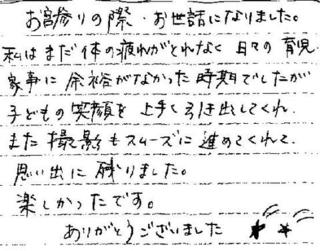 お宮参りの際・お世話になりました。
私はまだ体の疲れがとれなく 日々の育児
家事に余裕がなかった時期でしたが
子どもの笑顔を上手く引き出してくれ
また撮影もスムーズに進めてくれて
思い出に残りました。
楽しかったです。
ありがとうございました